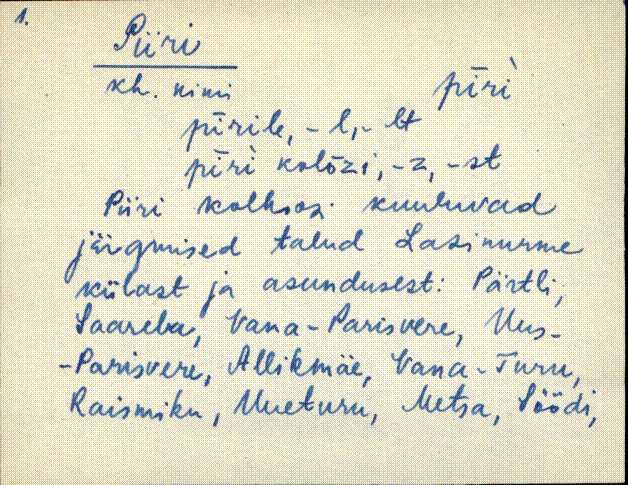 1.
Piiri
kh. nimi pīrì
pīrile, -l, -lt
pīrì kolōzi, -z, -st
Piiri kolhoosi kuuluvad
järgmised talud Lasinurme
külast ja asundusest: Pärtli,
Saareba, Vana-Parisvere, Uus-
-Parisvere, Allikmäe, Vana-Turu,
Raismiku, Uueturu, Metsa, Söödi,